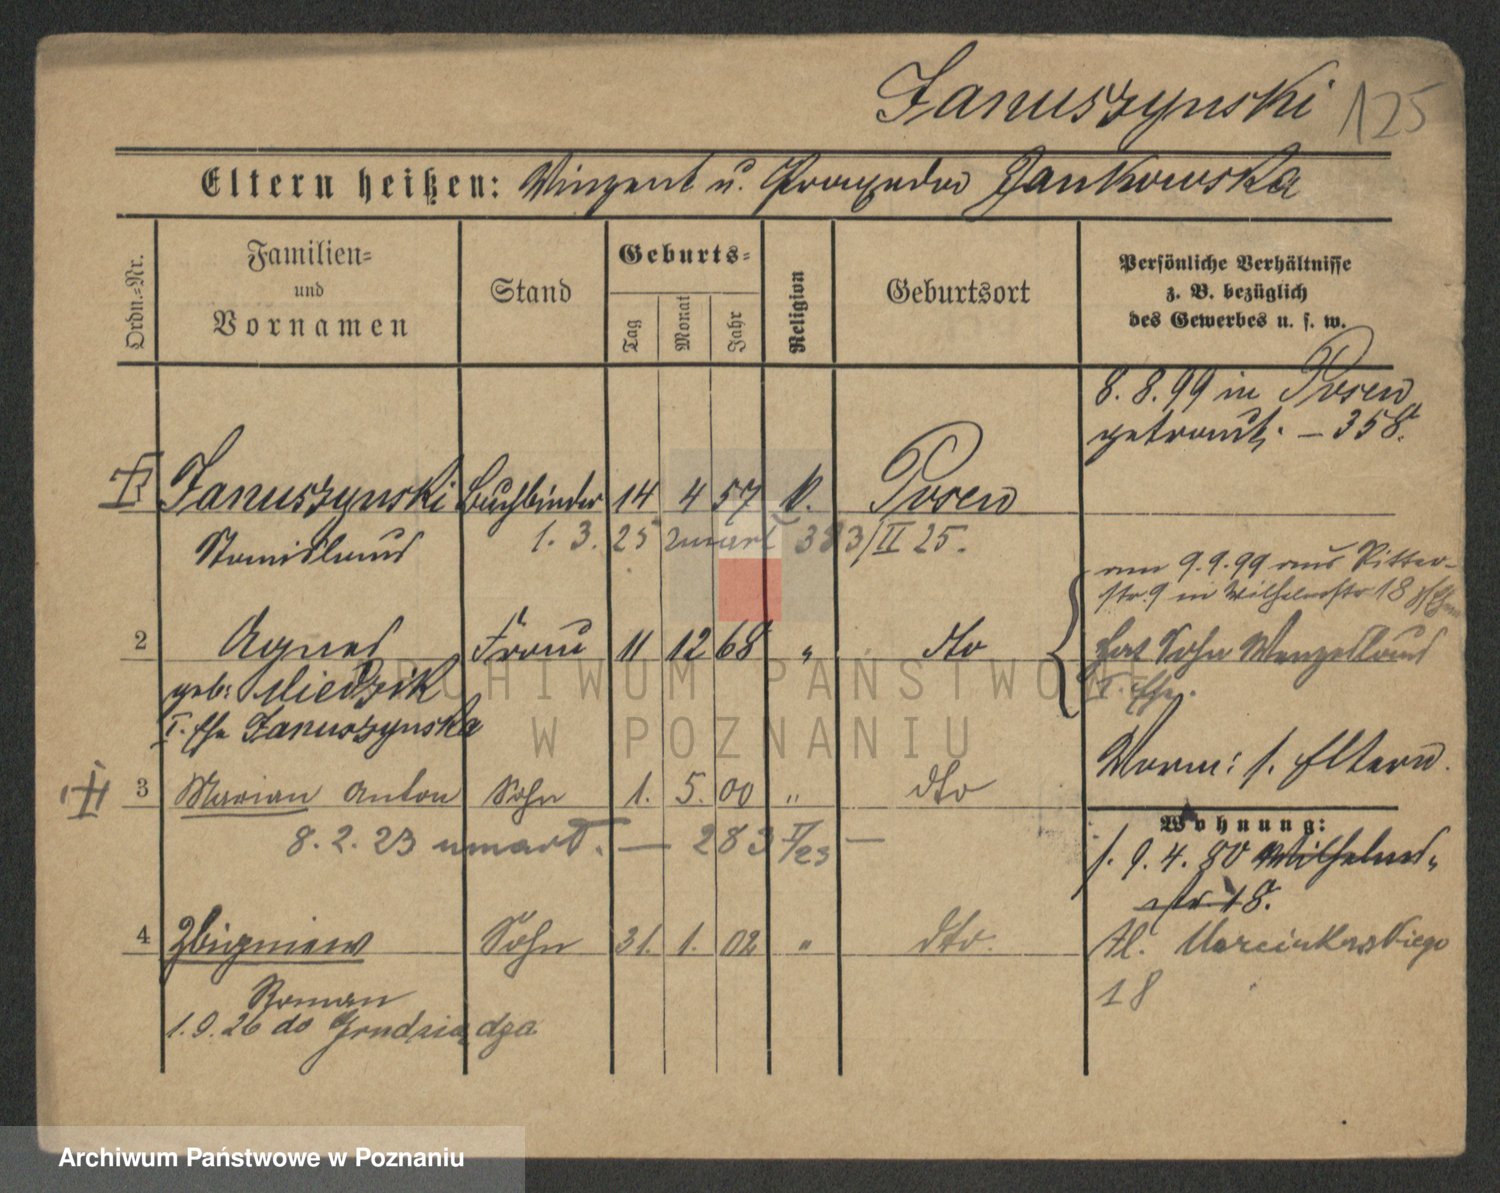 Januszynski 125
Eltern heißen: Vinzent u. Praxeda Jankowska
Ordn.-Nr.
Familien- und Vornamen
Stand
Geburts-
Tag Monat Jahr
Religion
Geburtsort
Persönliche Verhältnisse
z. B. bezüglich
des Gewerbes u. s. w.
8. 8. 99 in Posen
getraut. – 358.
Januszynski Buchbinder 14 4 57 k. Posen
Stanislaus
1. 3. 25 zmarł 383/II 25.
am 9.9.99 aus Ritter-
str. 9 in Wilhelmstr 18
2 Agnes Frau 11 12 68 " dto
hat Sohn Wenzeslaus
geb: Miedzik
I. Ehe.
I. Ehe Januszynska
Vorm: s. Eltern.
3 Marian Anton Sohn 1. 5. 00 " dto
8. 2. 23 umarł. — 283
Wohnung:
s. 9. 4. 80 Wilhelms-
str 18.
4 Zbigniew Sohn 31. 1. 02 " dto.
Al. Marcinkowskiego
18
Roman
1. 9. 26 do Grudziądza
ARCHIWUM PAŃSTWOWE
W POZNANIU
Archiwum Państwowe w Poznaniu